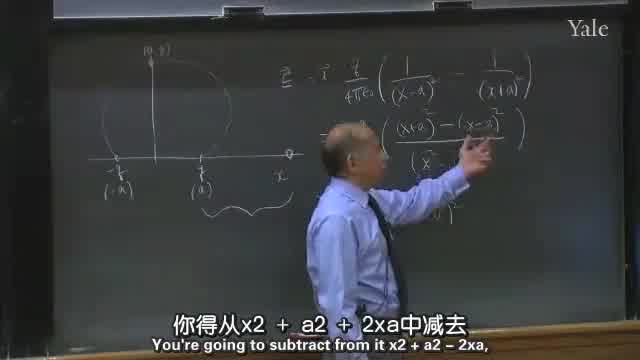 Yale
(0, y)
E = i q/4πε₀ ( 1/(x-a)² - 1/(x+a)² )
( (x+a)² - (x-a)² / (x² )
-q q
(-a) (a) x
)²
你得从x2 + a2 + 2xa中减去
You're going to subtract from it x2 + a2 - 2xa,